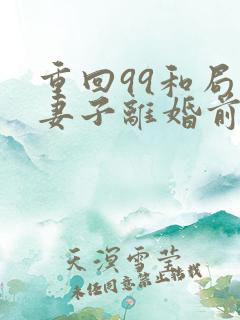 重回99和局
妻子離婚前
天溟雪莹
未经同意禁止转载